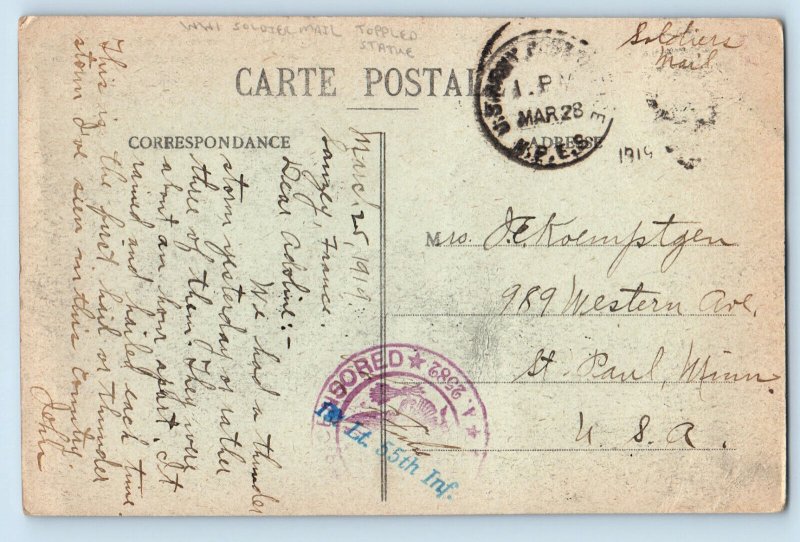 WW1 SOLDIER MAIL TOPPLED
STATUE
Soldiers
Mail
CARTE POSTALE
U.S. ARMY
MAR 28
M.P.E.S.
1919
CORRESPONDANCE
ADRESSE
March 25, 1919
Sanzey, France.
Dear Adoline:-
We had a thunder
storm yesterday or rather
three of them. They were
about an hour apart. It
rained and hailed each time.
This is the first hail or thunder
storm I've seen in this country.
John
Mrs. J. E. Koemptgen
989 Western Ave,
St. Paul, Minn.
U. S. A.
CENSORED ★ A.2589 ★
1st Lt. 55th Inf.